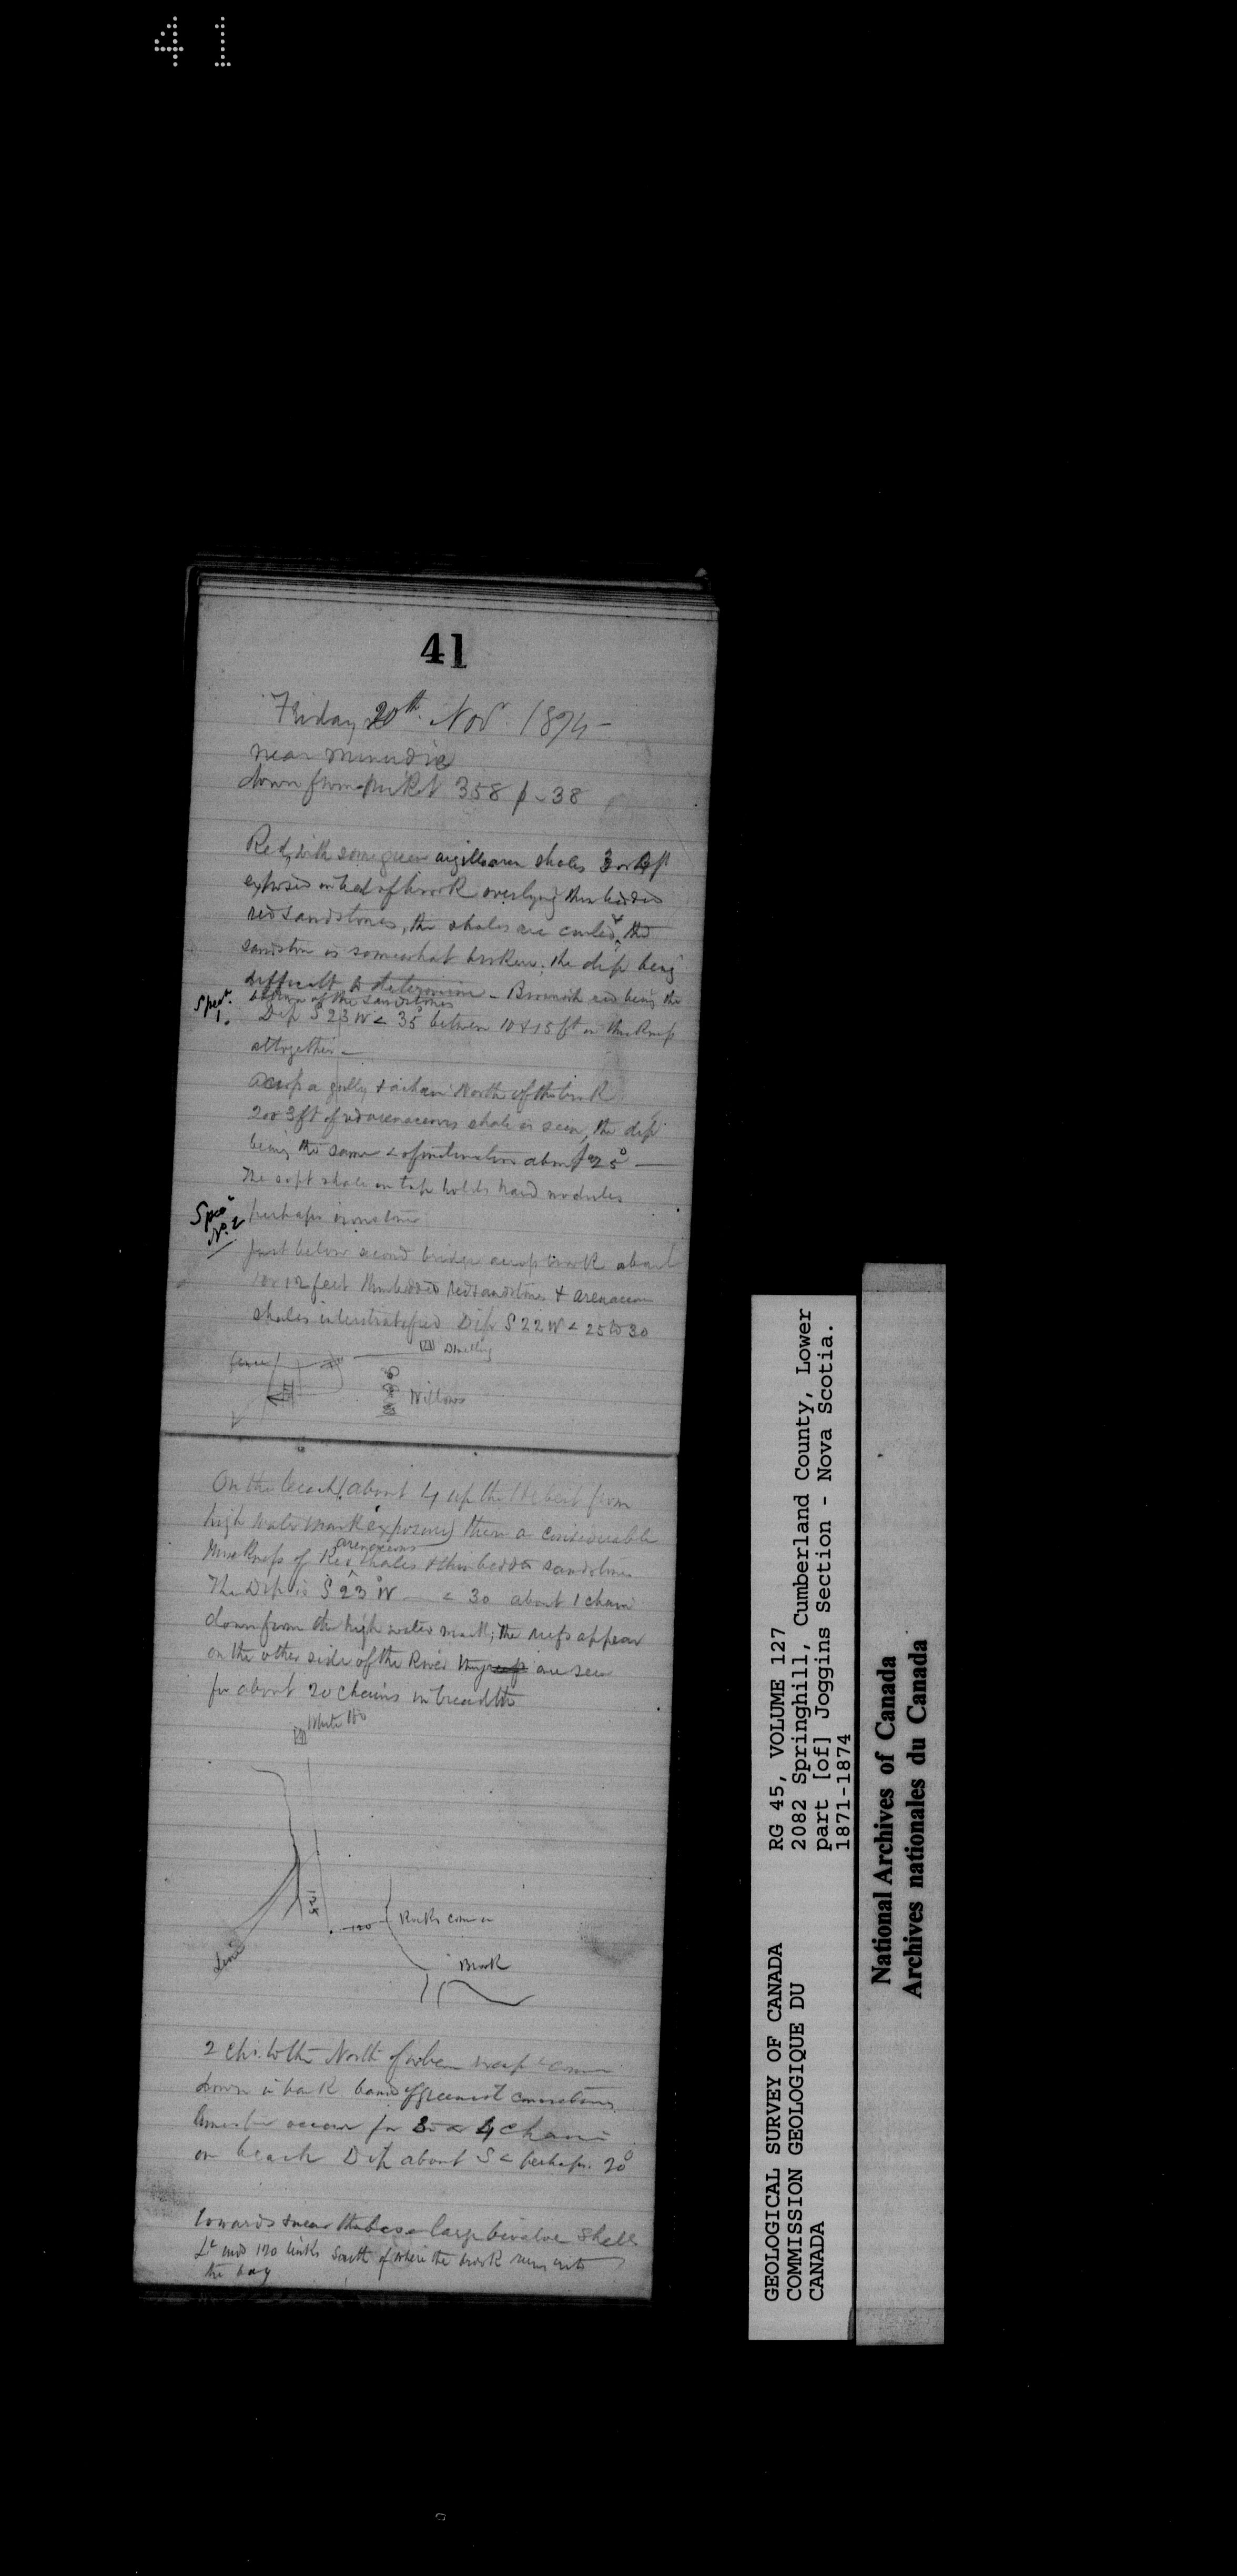 41
41
Friday 20th Nov. 1874 -
near minudie
down from picket 358 p - 38
Red, with some green argillaceous shales 3 or 4 ft
exposed in bed of brook overlying thin bedded
red sandstones, the shales are curled, & the
sandstone is somewhat broken; the dip being
difficult to determine - Brownish red being the
of the sandstones
Spect. 1.
Dip S 23 W < 35° between 10 & 15 ft in thickness
altogether -
Across a gully & a chain North of the brook
2 or 3 ft of red arenaceous shale is seen, the dip
being the same < of inclination about 25° -
The soft shale on top holds hard nodules
Spec No. 2
perhaps ironstone
Just below second bridge across brook about
10 or 12 feet thin bedded red sandstones & arenaceous
shales interstratified Dip S 22 W < 25 to 30
Dwelling
fence
Willows
On the beach (about 4 up the Hebert from
high water mark exposure) there a considerable
thickness of Red arenaceous shales & thin bedded sandstone
The Dip is S 23° W - < 30 about 1 chain
down from the high water mark; the reefs appear
on the other side of the River they reefs are seen
for about 20 chains in breadth
White Ho
120
Rocks come in
Brook
2 chs. to the North of where
down in bank band of
occur for 3 or 4 chains
on beach Dip about S < perhaps 20°
towards & near the base large bivalve shells
120 links South of where the brook runs into
the bay
GEOLOGICAL SURVEY OF CANADA
COMMISSION GEOLOGIQUE DU
CANADA
RG 45, VOLUME 127
2082 Springhill, Cumberland County, Lower
part [of] Joggins Section - Nova Scotia.
1871-1874
National Archives of Canada
Archives nationales du Canada